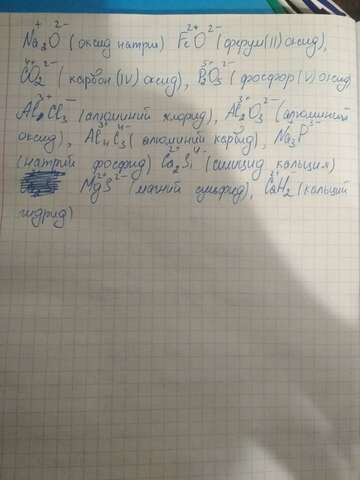 Na₃⁺O²⁻ (оксид натрия) Fe²⁺O²⁻ (ферум(II) оксид),
C⁴⁺O₂²⁻ (карбон (IV) оксид), P₂⁵⁺O₅²⁻ (фосфор (V) оксид
Al₂³⁺Cl₃⁻ (алюминий хлорид), Al₂³⁺O₃²⁻ (алюминий
оксид), Al₄³⁺C₃⁴⁻ (алюминий карбид), Na₃⁺P³⁻
(натрий фосфид) Ca₂²⁺Si⁴⁻ (силицид кальция)
Mg²⁺S²⁻ (магний сульфид), Ca²⁺H₂⁻ (кальций
гидрид)